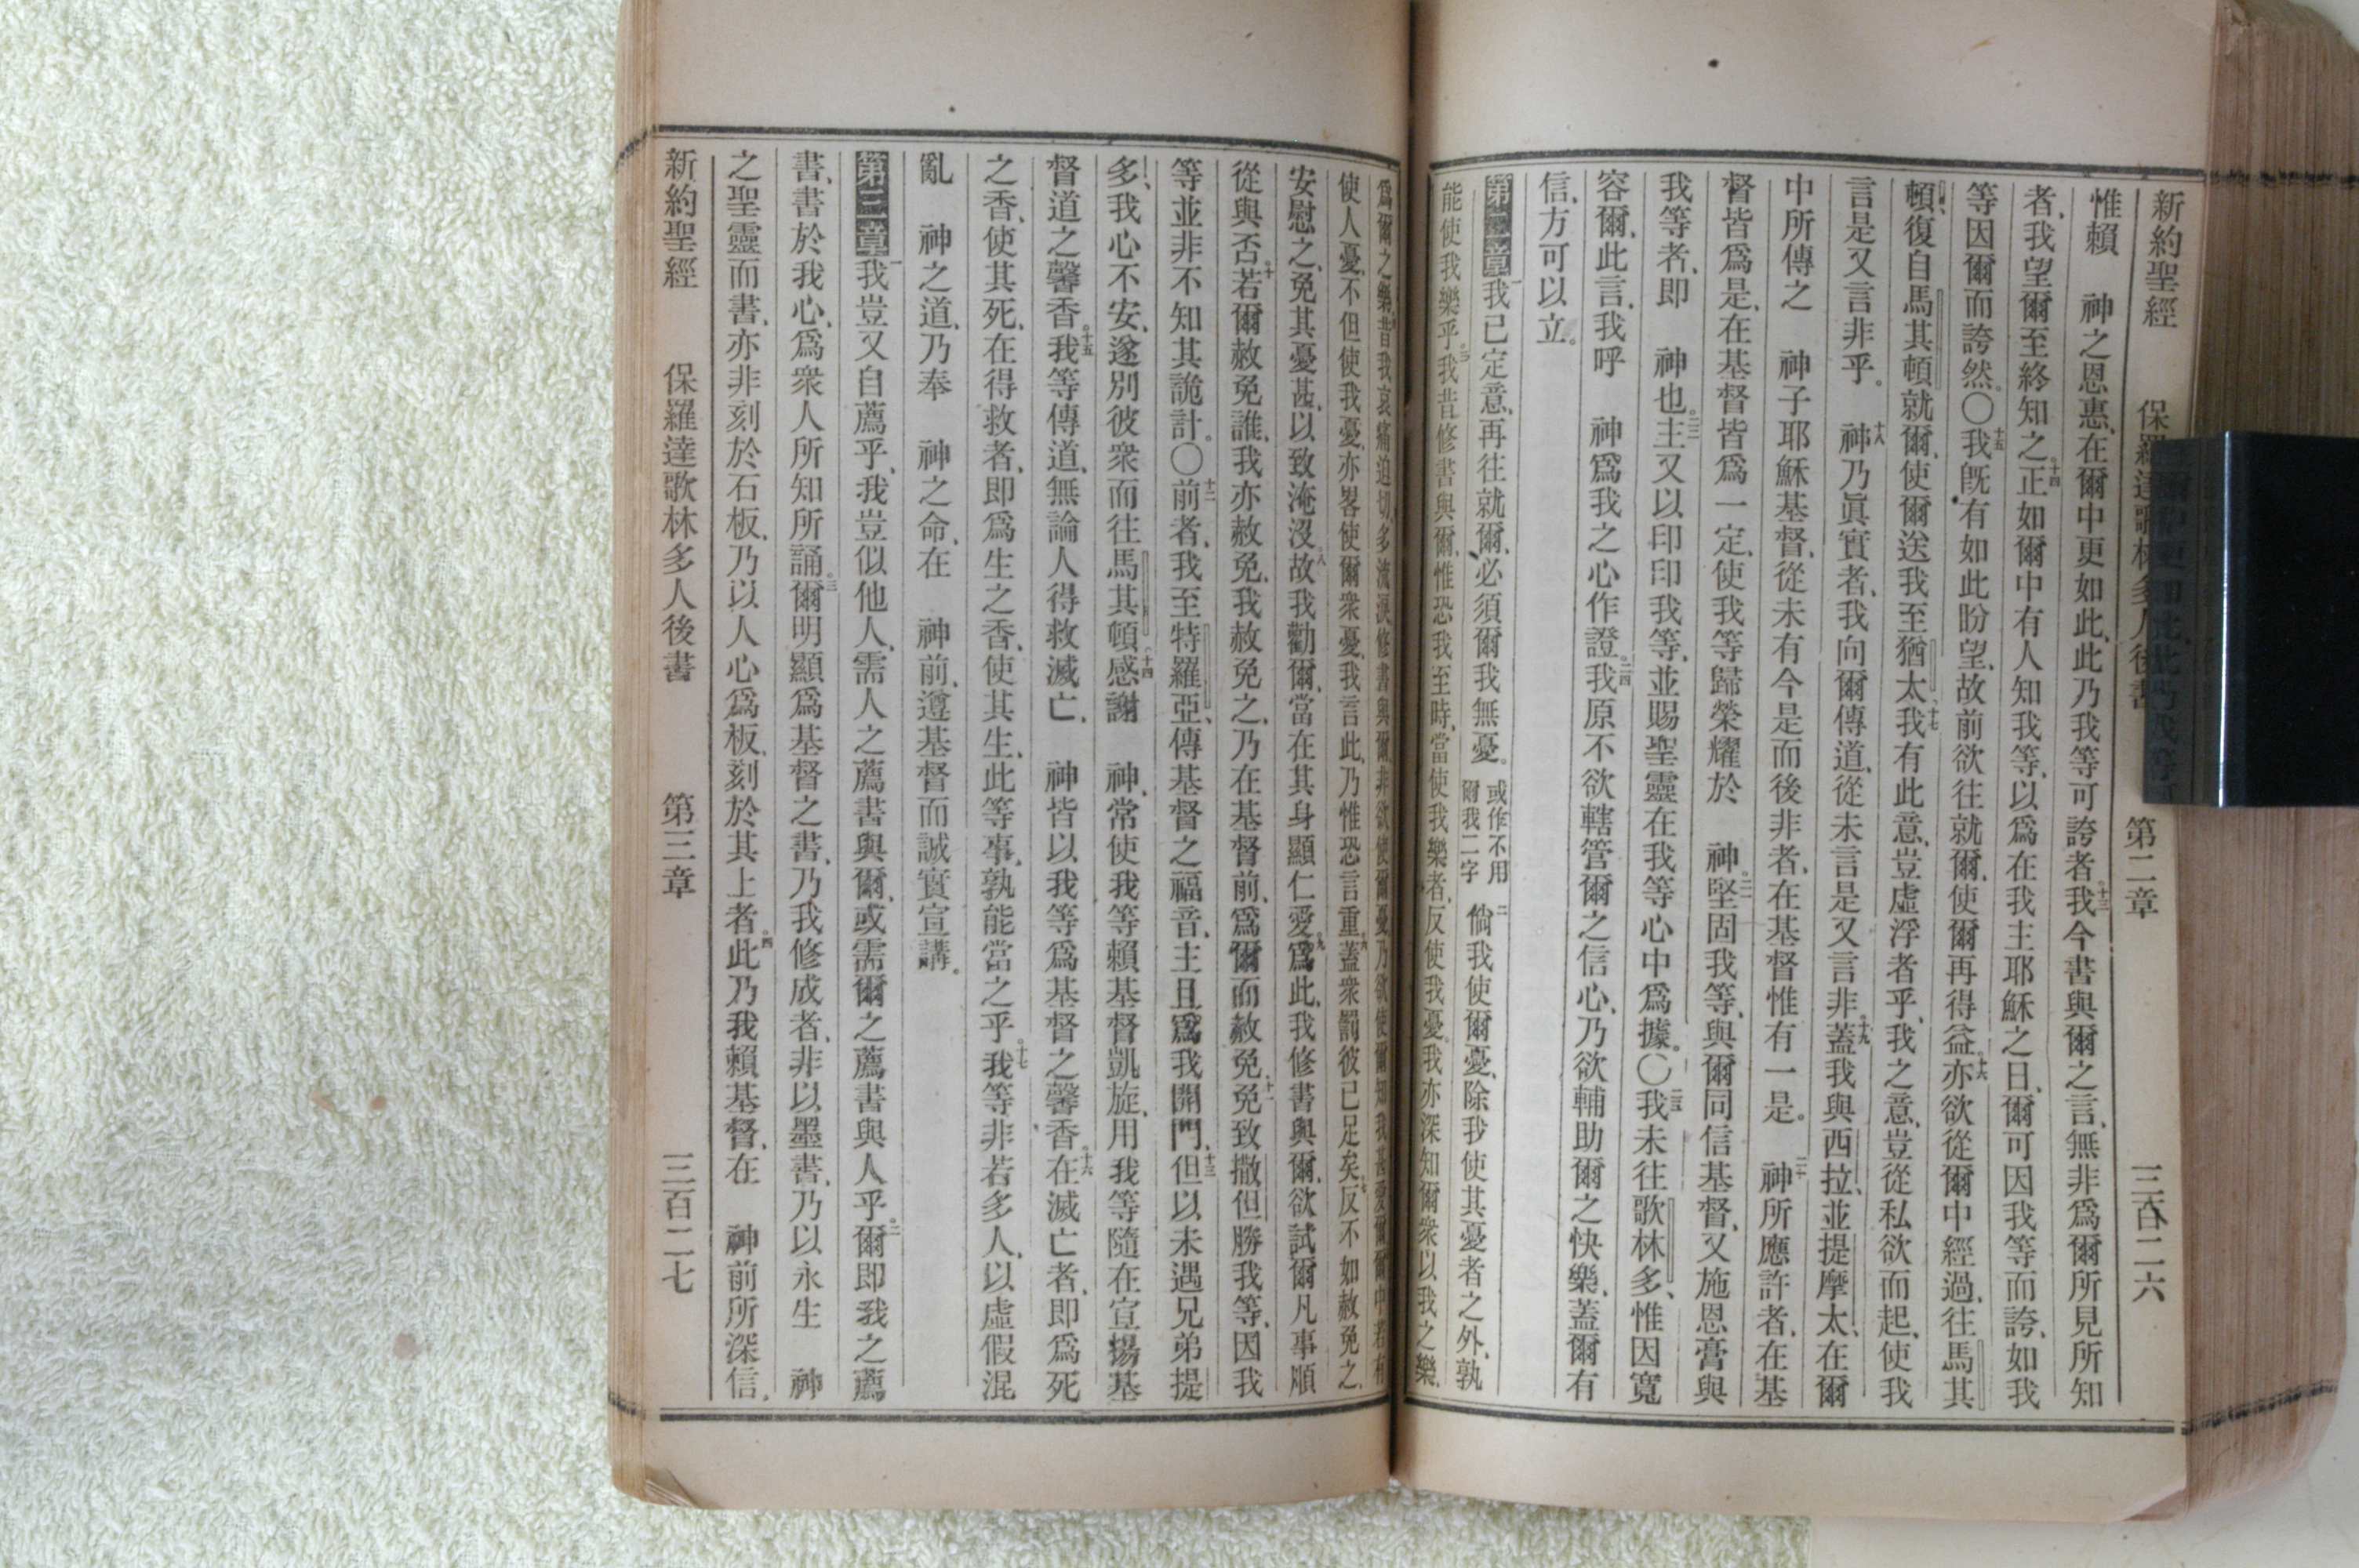 新約聖經 保羅達歌林多人後書 第二章 三百二六
惟賴 神之恩惠、在爾中更如此、此乃我等可誇者。十三我今書與爾之言、無非爲爾所見所知
者、我望爾至終知之。十四正如爾中有人知我等、以爲在我主耶穌之日、爾可因我等而誇、如我
等因爾而誇然。〇十五我旣有如此盼望、故前欲往就爾、使爾再得益。十六亦欲從爾中經過、往馬其
頓、復自馬其頓就爾、使爾送我至猶太。十七我有此意、豈虛浮者乎、我之意、豈從私欲而起、使我
言是又言非乎。十八神乃眞實者、我向爾傳道、從未言是又言非。十九蓋我與西拉、並提摩太、在爾
中所傳之 神子耶穌基督、從未有今是而後非者、在基督惟有一是。二十神所應許者、在基
督皆爲是、在基督皆爲一定、使我等歸榮耀於 神。二一堅固我等、與爾同信基督、又施恩膏與
我等者、卽 神也。二二主又以印印我等、並賜聖靈在我等心中爲據。〇二三我未往歌林多、惟因寬
容爾、此言、我呼 神爲我之心作證。二四我原不欲轄管爾之信心、乃欲輔助爾之快樂、蓋爾有
信、方可以立。
第二章一我已定意、再往就爾、必須爾我無憂。或作不用爾我二字二倘我使爾憂、除我使其憂者之外、孰
能使我樂乎。三我昔修書與爾、惟恐我至時、當使我樂者、反使我憂。我亦深知爾衆以我之樂、
爲爾之樂。四昔我哀痛迫切、多流淚修書與爾、非欲使爾憂、乃欲使爾知我甚愛爾。五爾中若有
使人憂、不但使我憂、亦畧使爾衆憂、我言此、乃惟恐言重。六蓋衆罰彼已足矣。七反不如赦免之、
安慰之、免其憂甚、以致淹沒。八故我勸爾、當在其身顯仁愛。九爲此、我修書與爾、欲試爾凡事順
從與否。十若爾赦免誰、我亦赦免、我赦免之、乃在基督前、爲爾而赦免。十一免致撒但勝我等、因我
等並非不知其詭計。〇十二前者、我至特羅亞、傳基督之福音、主且爲我開門、十三但以未遇兄弟提
多、我心不安、遂別彼衆而往馬其頓。十四感謝 神、常使我等賴基督凱旋、用我等隨在宣揚基
督道之馨香。十五我等傳道、無論人得救滅亡、 神皆以我等爲基督之馨香。十六在滅亡者、卽爲死
之香、使其死、在得救者、卽爲生之香、使其生、此等事、孰能當之乎。十七我等非若多人、以虛假混
亂 神之道、乃奉 神之命、在 神前、遵基督而誠實宣講。
第三章一我豈又自薦乎、我豈似他人、需人之薦書與爾、或需爾之薦書與人乎。二爾卽我之薦
書、書於我心、爲衆人所知所誦。三爾明顯爲基督之書、乃我修成者、非以墨書、乃以永生 神
之聖靈而書、亦非刻於石板、乃以人心爲板、刻於其上者。四此乃我賴基督、在 神前所深信、
新約聖經 保羅達歌林多人後書 第三章 三百二七